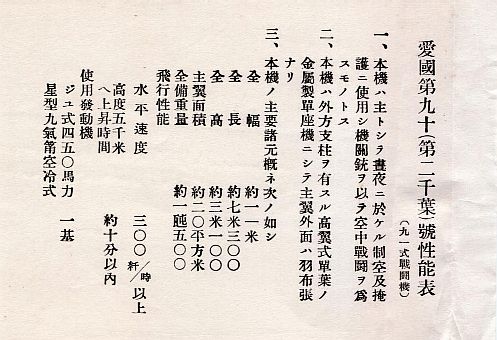 愛國第九十(第二千葉)號性能表
(九一式戰鬪機)
一、本機ハ主トシテ晝夜ニ於ケル制空及掩
護ニ使用シ機關銃ヲ以テ空中戰鬪ヲ爲
スモノトス
二、本機ハ外方支柱ヲ有スル高翼式單葉ノ
金屬製單座機ニシテ主翼外面ハ羽布張
ナリ
三、本機ノ主要諸元概ネ次ノ如シ
全幅 約一一米
全長 約七米三〇〇
全高 約三米一〇〇
主翼面積 約二〇平方米
全備重量 約一瓲五〇〇
飛行性能
水平速度 三〇〇粁/時以上
高度五千米
ヘ上昇時間 約十分以內
使用發動機
ジュ式四五〇馬力 一基
星型九氣筩空冷式